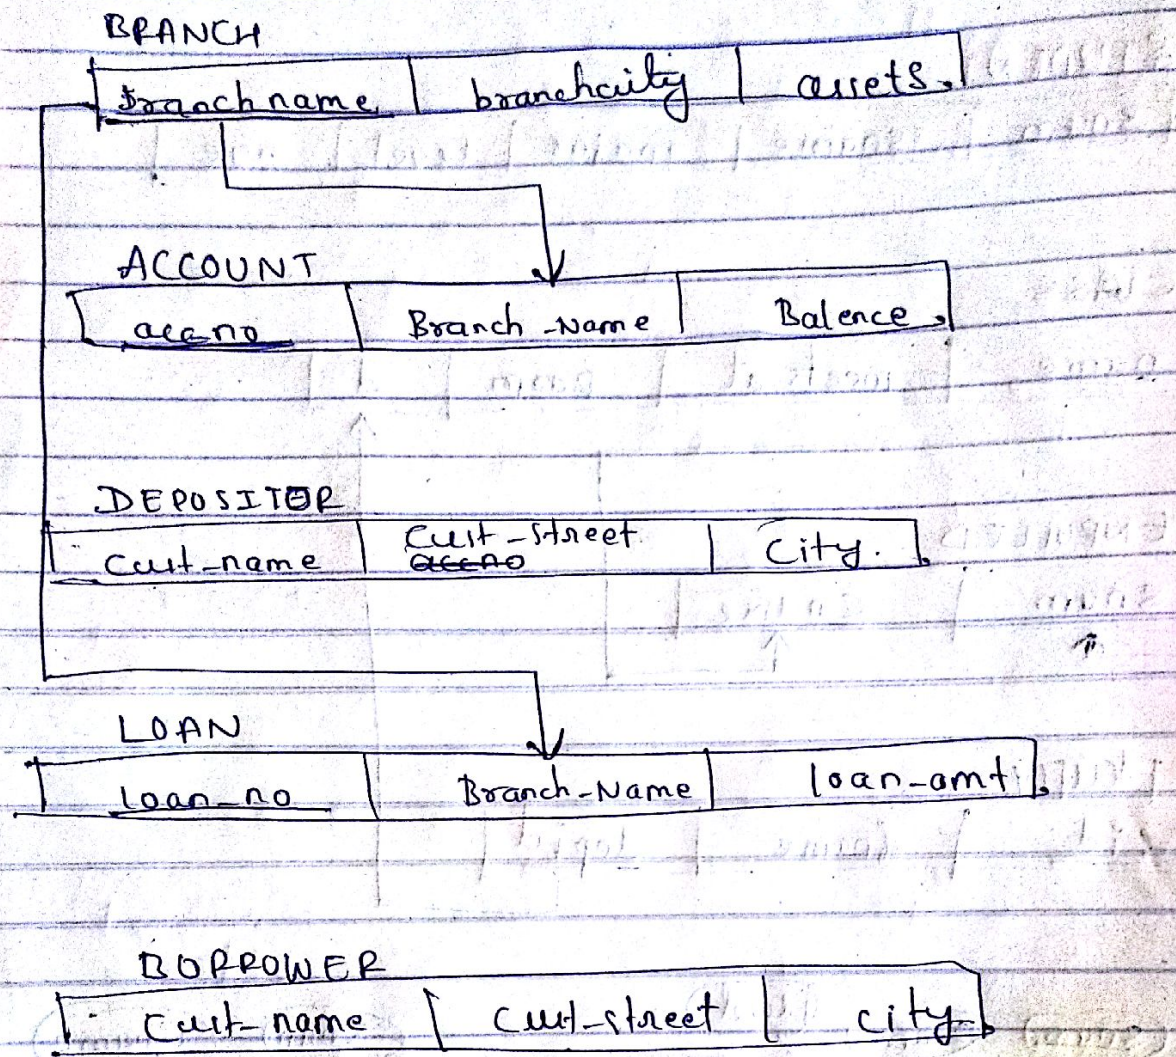 BRANCH
Branchname branchcity assets
ACCOUNT
accno Branch-Name Balence
DEPOSITOR
Cust-name Cust-street City.
accno
LOAN
Loan-no Branch-Name loan-amt
BORROWER
Cust-name Cust-street city